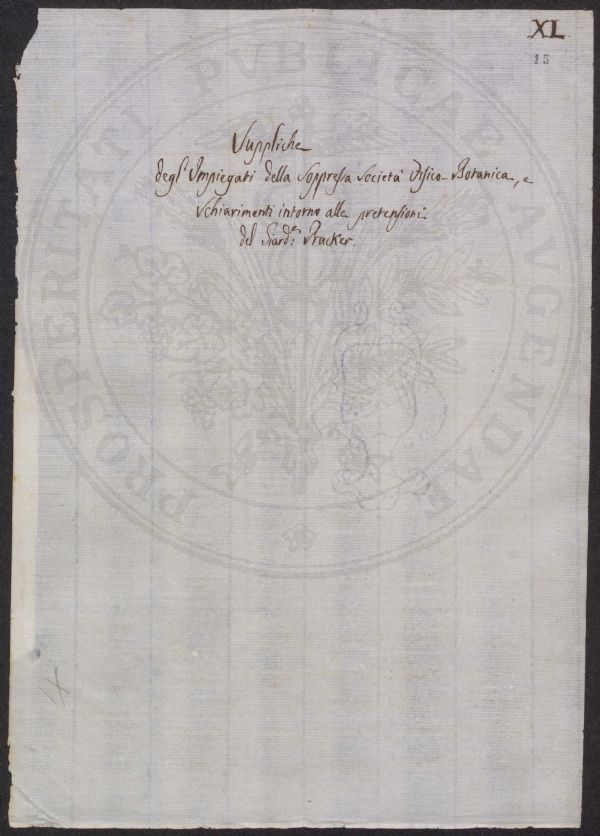 XL.
15
Suppliche
degl'Impiegati della soppressa Società Fisico-Botanica, e
Schiarimenti intorno alle pretensioni
del Giard.e Prucker.
PROSPERITATI PVBLICAE AVGENDAE